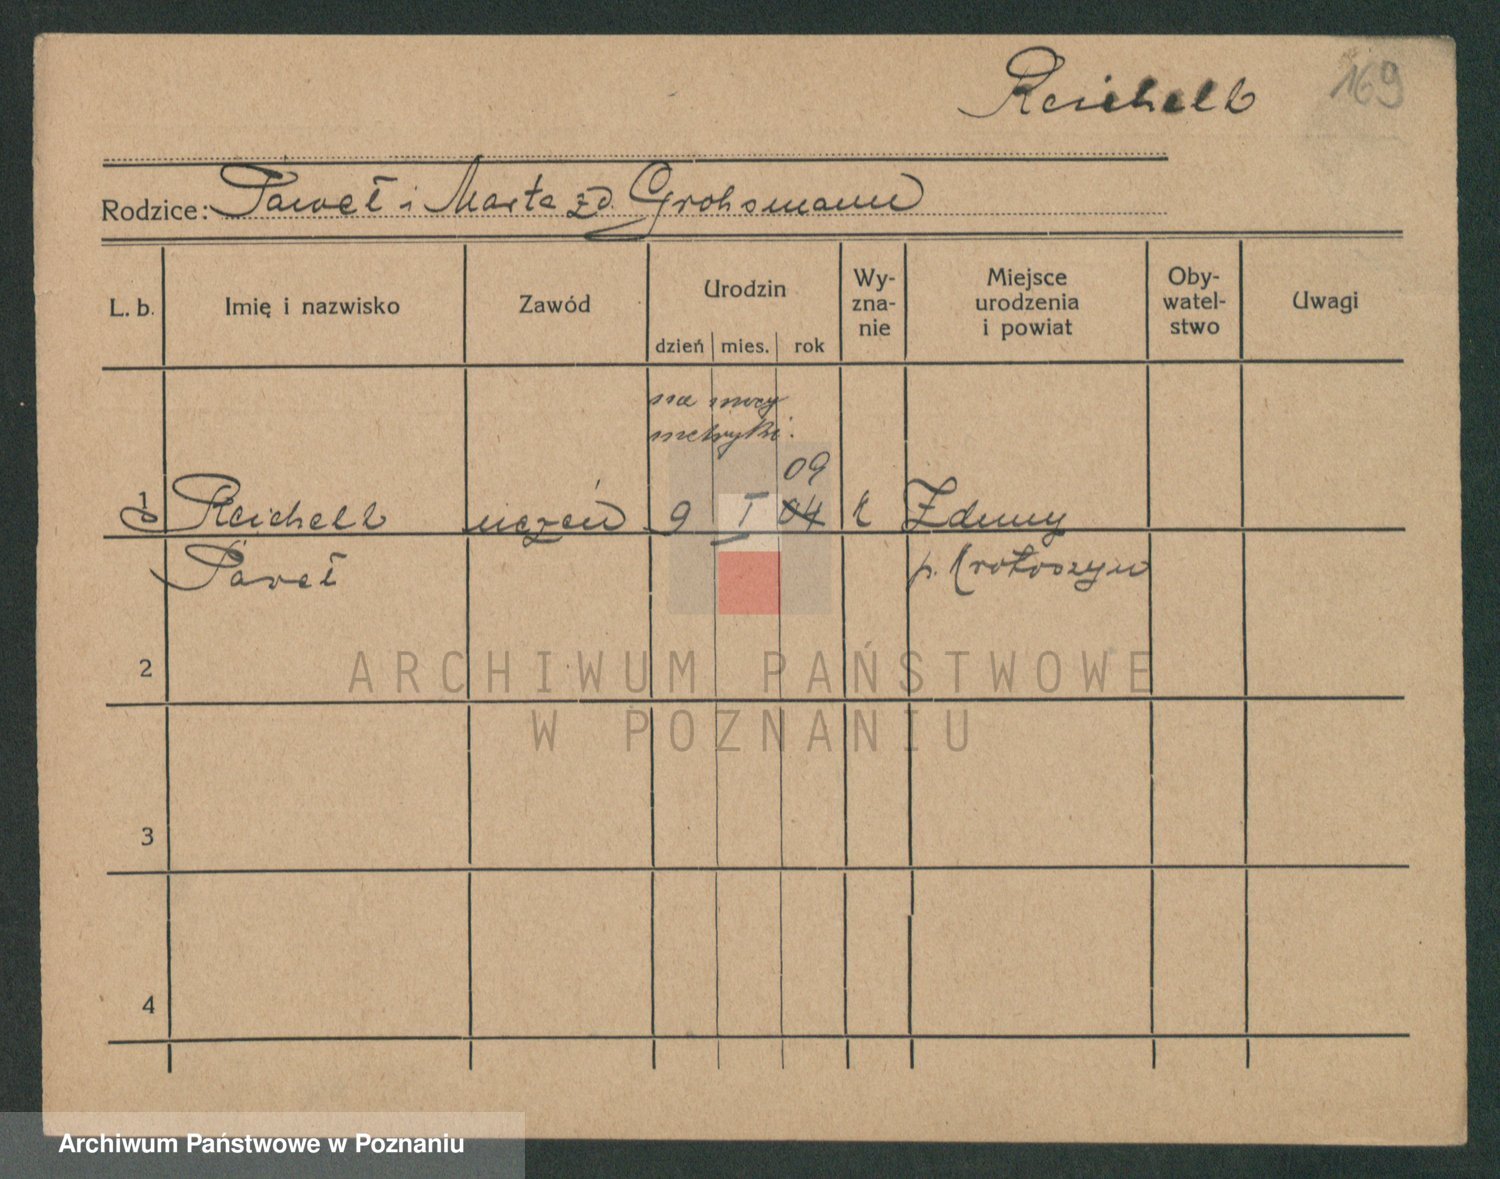 Reichelt 169
Rodzice: Paweł i Marta zd. Grohsmann
L. b. Imię i nazwisko Zawód Urodzin dzień mies. rok Wy-zna-nie Miejsce urodzenia i powiat Oby-watel-stwo Uwagi
na mocy
metryki.
09
1 Reichelt uczeń 9 I 04 k Zduny
Paweł p. Krotoszyn
2
ARCHIWUM PAŃSTWOWE
W POZNANIU
3
4
Archiwum Państwowe w Poznaniu